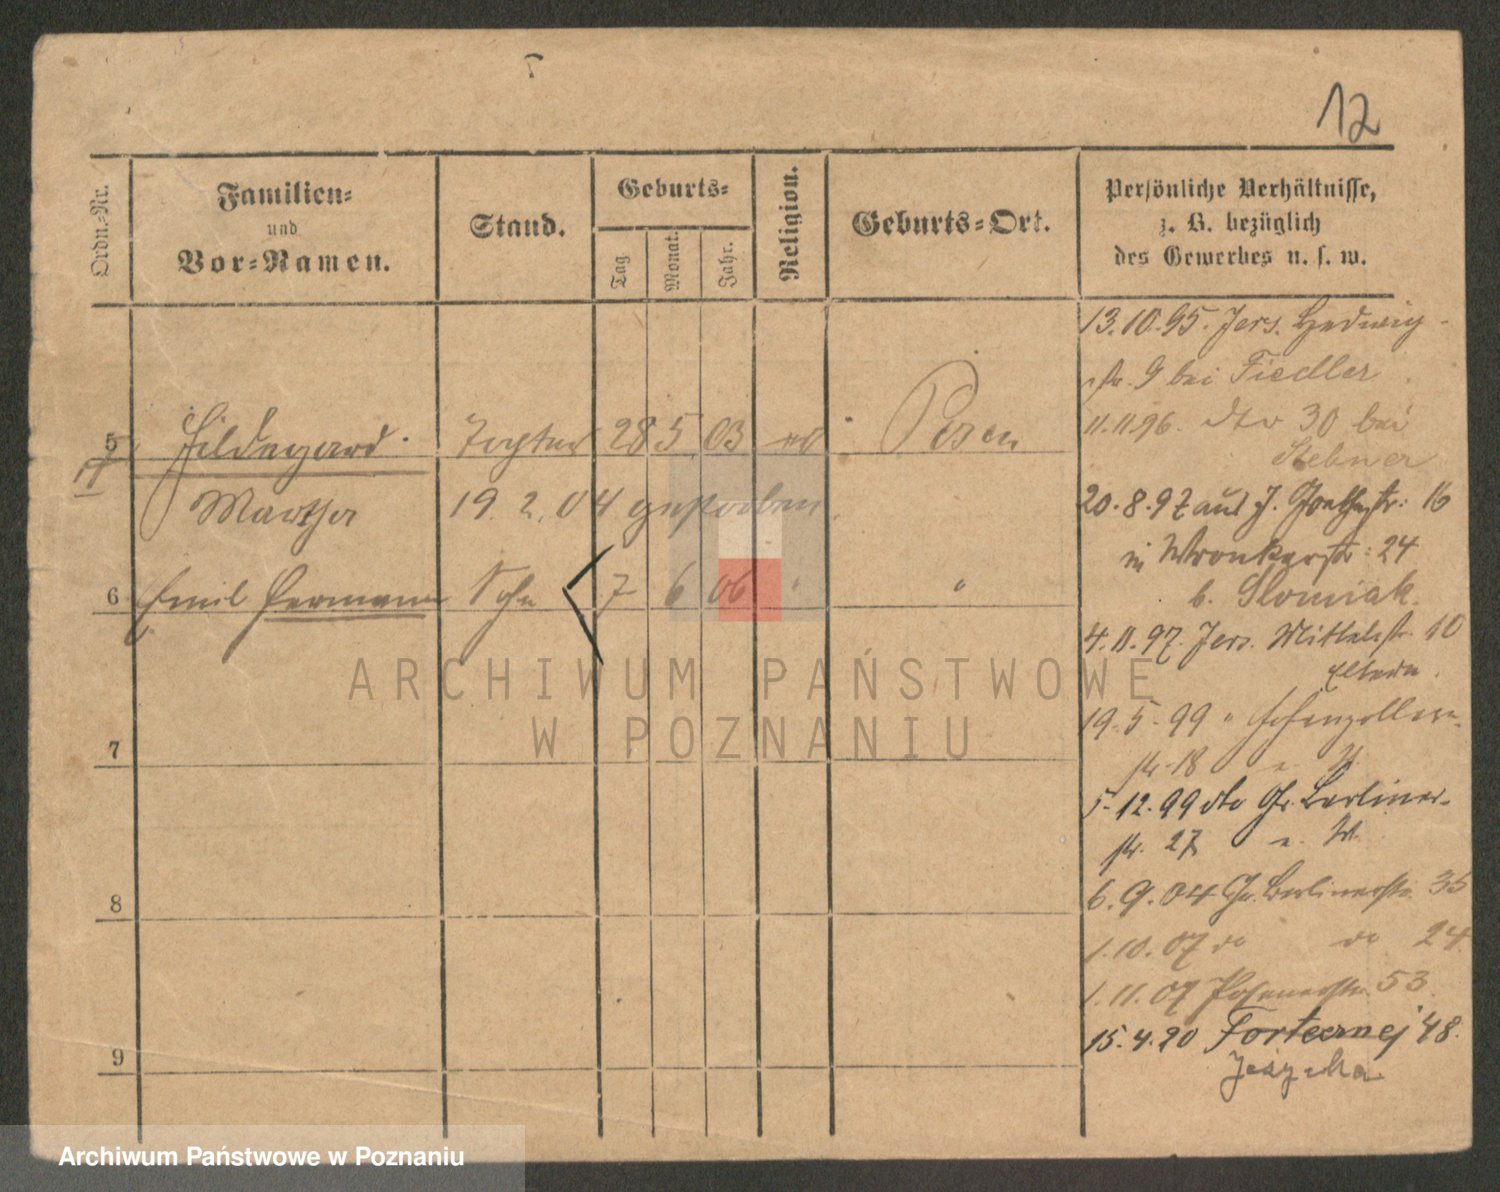 12
Ordn.-Nr.
Familien-
und
Vor-Namen.
Stand.
Geburts-
Tag
Monat.
Jahr.
Religion.
Geburts-Ort.
Persönliche Verhältnisse,
z. B. bezüglich
des Gewerbes u. s. w.
5 Hildegard Tochter 28 5 03 Posen
Martha 19. 2. 04 gestorben.
6 Emil Hermann Sohn 7 6 06 " "
7
8
9
13.10.95. Jers. Hedwig-
str. 9 bei Fiedler
11.11.96. dto 30 bei
20.8.97 aus J. 16
in Wronkerstr: 24
b. Slomiak.
4.11.97. Jers. Mittelstr. 10
Eltern.
19.5.99 " Hohenzollern-
str. 18 e. W.
5.12.99 dto Gr. Berliner-
str. 27 e. W.
6.9.04 Gr. Berlinerstr. 35
1.10.07 do do 24
1.11.09 Posenerstr. 53
15.4.20 Fortecznej 48.
ARCHIWUM PAŃSTWOWE
W POZNANIU
Archiwum Państwowe w Poznaniu